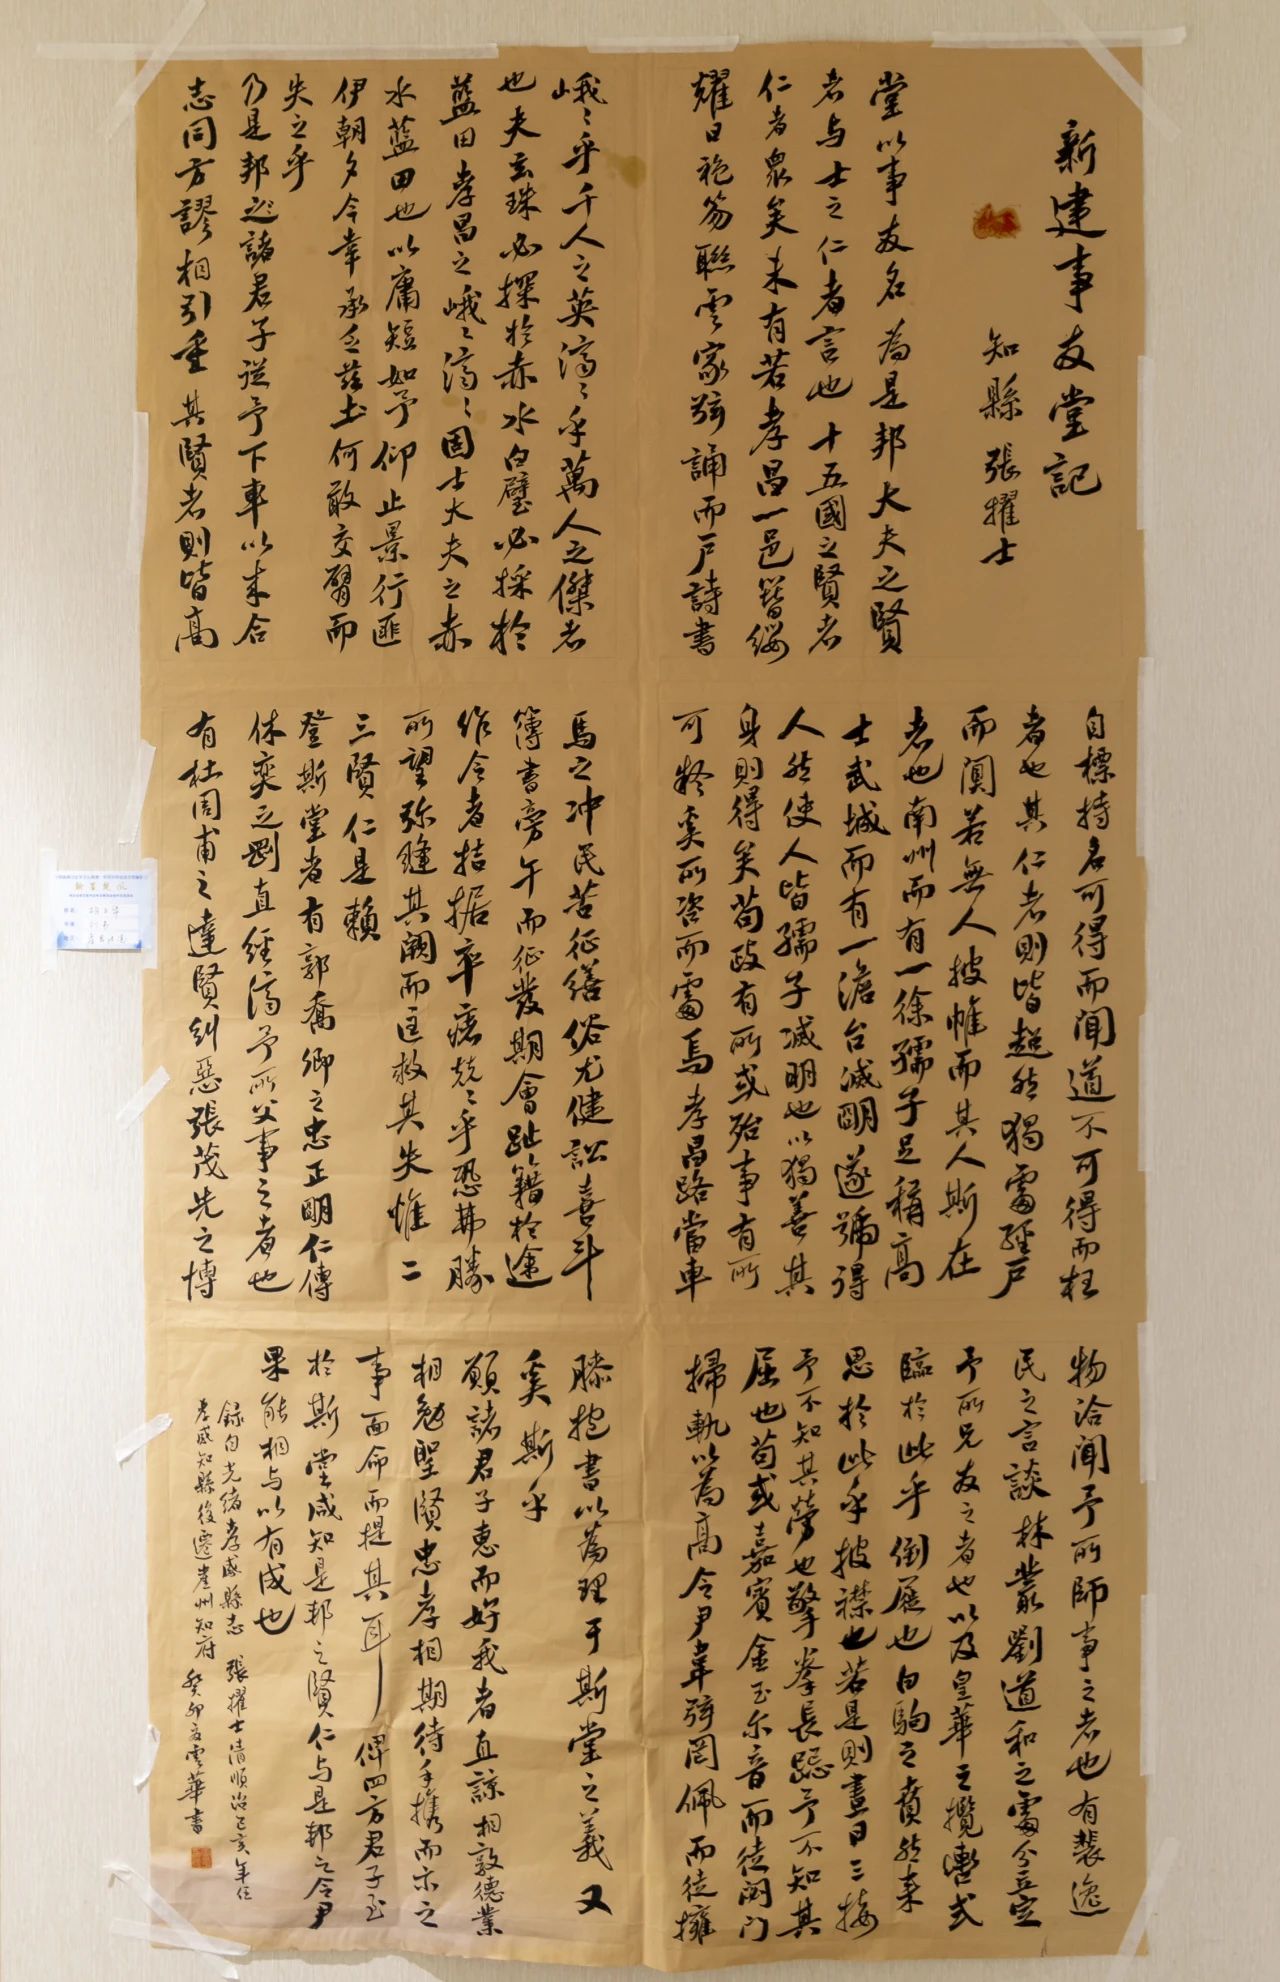 新建事友堂記
知縣張擢士
堂以事友名為是邦大夫之賢
者与士之仁者言也十五國之賢者
仁者衆矣未有若孝昌一邑簪纓
耀日袍笏聯雲家弦誦而户詩書
峨〻乎千人之英濟〻乎萬人之傑者
也夫玄珠必探於赤水白璧必採於
藍田孝昌之峨〻濟〻固士大夫之赤
水藍田也以庸短如予仰止景行匪
伊朝夕今幸承乏茲土何敢交臂而
失之乎
乃是邦之諸君子從予下車以来合
志同方謬相引重其賢者則皆高
自標持名可得而聞道不可得而枉
者也其仁者則皆超然獨處經户
而闃若無人披帷而其人斯在
者也南州而有一徐孺子足稱高
士武城而有一澹台滅明遂號得
人然使人皆孺子滅明也以獨善其
身則得矣苟政有所或殆事有所
可疑奚所咨而處焉孝昌路當車
馬之冲民苦征繕俗尤健訟喜斗
簿書旁午而征發期會趾籍於途
作令者拮据卒瘏兢〻乎恐弗勝
所望弥縫其闕而匡救其失惟二
三賢仁是賴
登斯堂者有郭喬卿之忠正明仁傅
休奕之剛直經濟予所父事之者也
有杜周甫之達賢糾惡張茂先之博
物洽聞予所師事之者也有裴逸
民之言談林叢劉道和之處分立定
予所兄友之者也以及皇華之攬轡式
臨於此乎倒屣也白駒之賁然来
思於此乎披襟也若是則晝日三接
予不知其勞也擎拳長跽予不知其
屈也苟或嘉賓金玉尔音而徒閉门
掃軌以為高令尹韋弦罔佩而徒擁
膝抱書以為理于斯堂之義又
奚斯乎
願諸君子惠而好我者直諒相敦德業
相勉聖賢忠孝相期待手携而示之
事面命而提其耳俾四方君子至
於斯堂咸知是邦之賢仁与是邦之令尹
果能相与以有成也
録自光緒孝感縣志 張擢士清順治己亥年任
孝感知縣後遷崖州知府 癸卯夏雲華書